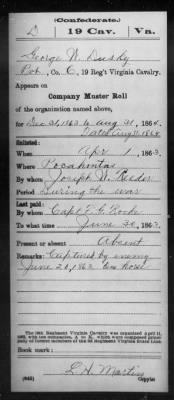 (Confederate.)
D 19 Cav. Va.
George W. Dusky
Pvt, Co. C, 19 Reg't Virginia Cavalry.
Appears on
Company Muster Roll
of the organization named above,
for Dec 31, 1863 to Aug 31, 1864.
Dated Aug 31, 1864
Enlisted:
When Apr 1, 1863.
Where Pocahontas
By whom Joseph W.
Period During the war
Last paid:
By whom Capt F. G.
To what time June 30, 1863.
Present or absent Absent
Remarks: Captured by enemy
June 20, 1863
The 19th Regiment Virginia Cavalry was organized April 11,
1863, with ten companies, A to K, which were composed
Book mark:
L. H. Martin
(642) Copyist.